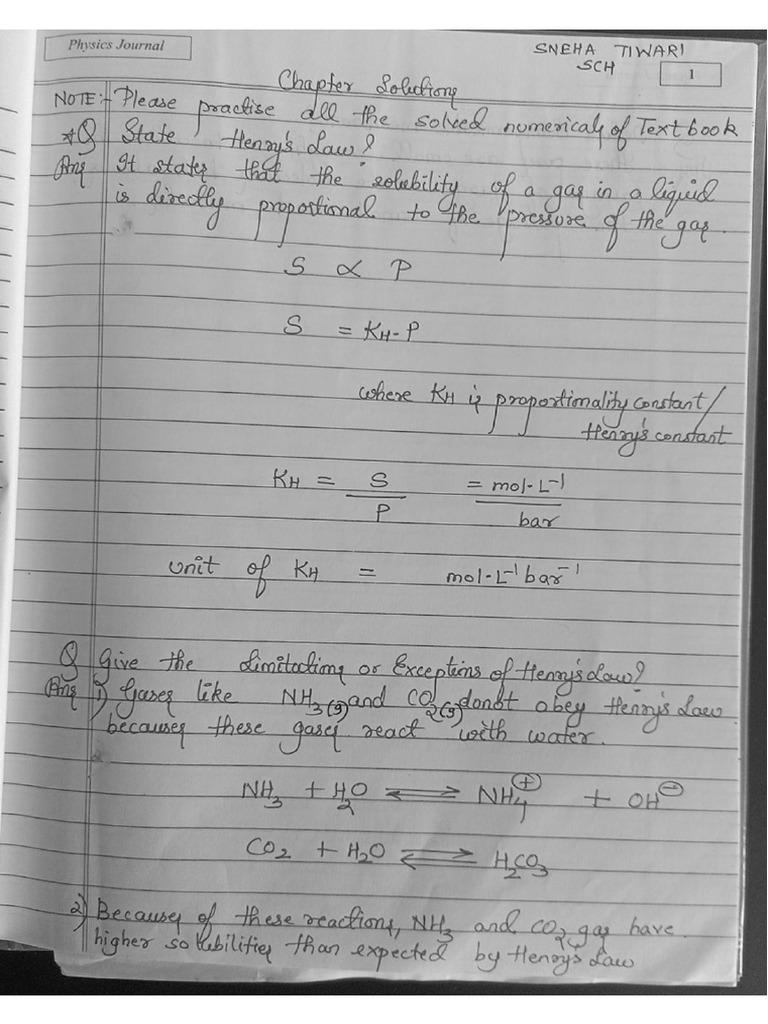 Physics Journal
SNEHA TIWARI
SCH
1
Chapter Solutions
NOTE:- Please practise all the solved numericals of Textbook
*Q State Henry's Law?
Ans It states that the solubility of a gas in a liquid
is directly proportional to the pressure of the gas.
S ∝ P
S = KH·P
where KH is proportionality constant/
Henry's constant
KH = S/P = mol·L⁻¹/bar
unit of KH = mol·L⁻¹bar⁻¹
Q Give the Limitations or Exceptions of Henry's Law?
Ans 1) Gases like NH₃(g) and CO₂(g) don't obey Henry's Law
becauses these gases react with water.
NH₃ + H₂O ⇌ NH₄⊕ + OH⊖
CO₂ + H₂O ⇌ H₂CO₃
2) Becauses of these reactions, NH₃ and CO₂ gas have
higher solubilities than expected by Henry's Law